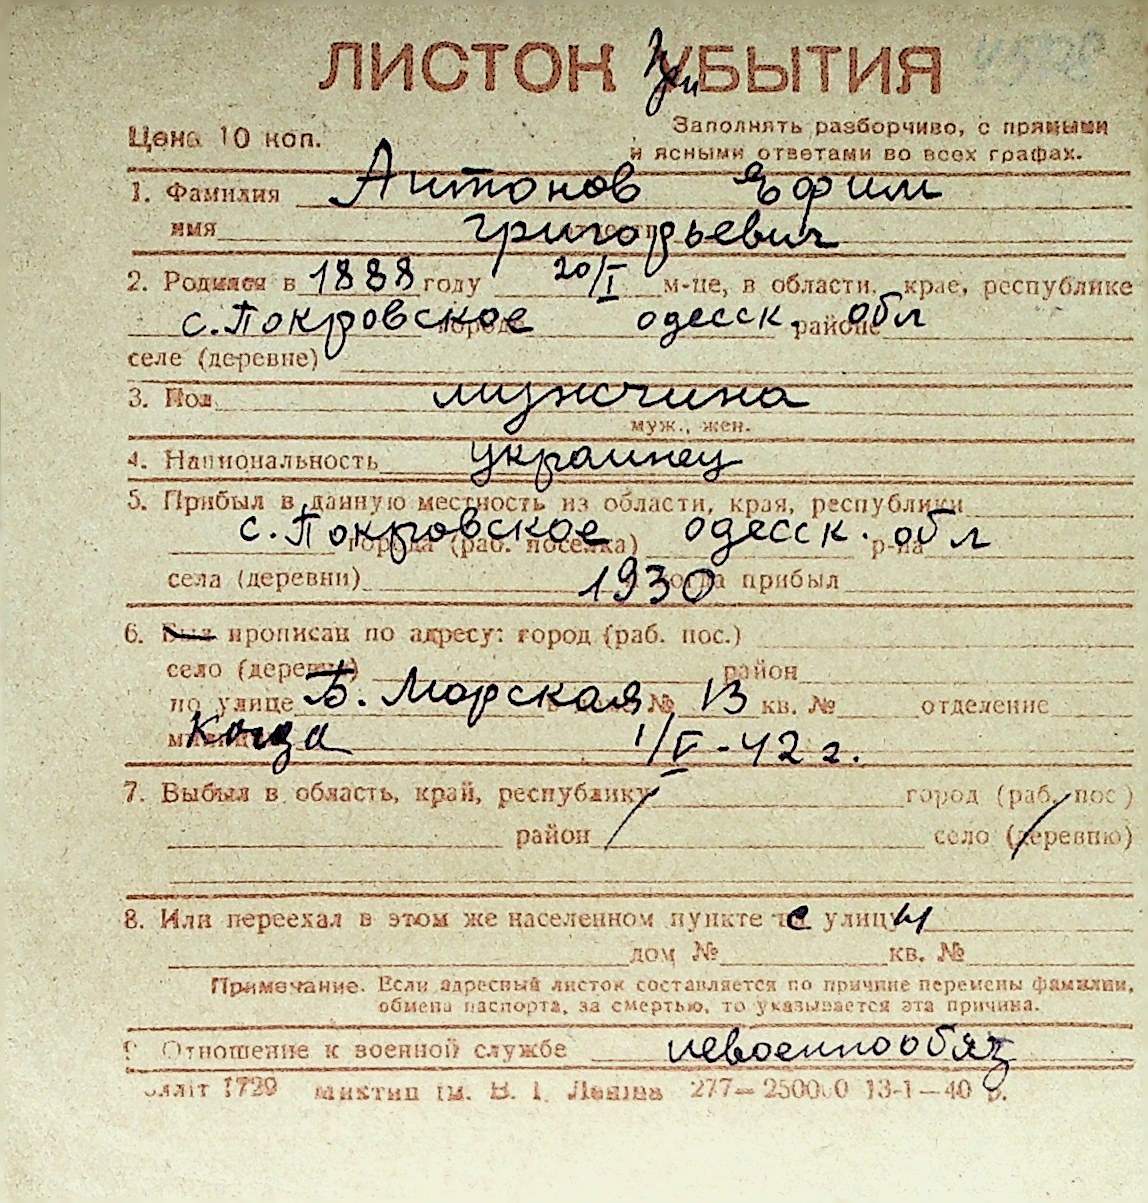 ЛИСТОК При УБЫТИЯ
Цена 10 коп.
Заполнять разборчиво, с прямыми
и ясными ответами во всех графах.
1. Фамилия Антонов Ефим
имя Григорьевич
2. Родился в 1888 году 20/I м-це, в области, крае, республике
с. Покровское города одесск. обл районе
селе (деревне)
3. Пол мужчина
муж., жен.
4. Национальность украинец
5. Прибыл в данную местность из области, края, республики
с. Покровское города (раб. поселка) одесск. обл р-на
села (деревни) 1930 и когда прибыл
6. Был прописан по адресу: город (раб. пос.)
село (деревня) район
по улице Б. Морская № 13 кв. № отделение
Когда 1/V-42 г.
7. Выбыл в область, край, республику город (раб. пос)
район село (деревню)
8. Или переехал в этом же населенном пункте с улицы
дом № кв. №
Примечание. Если адресный листок составляется по причине перемены фамилии,
обмена паспорта, за смертью, то указывается эта причина.
9. Отношение к военной службе невоеннообяз
1729 Миктип ім. В. І. Леніна 277—250000 13-1—40 р.